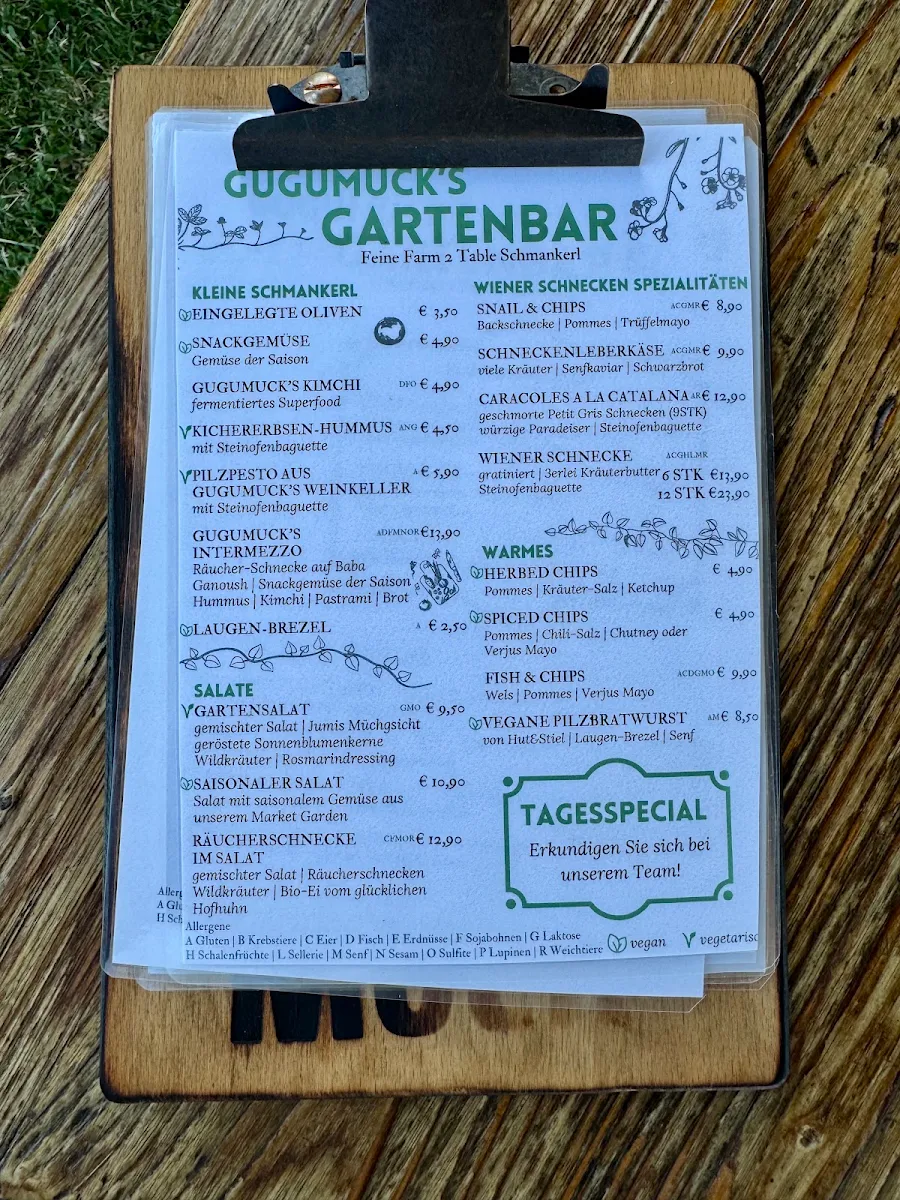 GUGUMUCK'S
GARTENBAR
Feine Farm 2 Table Schmankerl
KLEINE SCHMANKERL
EINGELEGTE OLIVEN € 3,50
SNACKGEMÜSE € 4,90
Gemüse der Saison
GUGUMUCK'S KIMCHI DFO € 4,90
fermentiertes Superfood
KICHERERBSEN-HUMMUS ANG € 4,50
mit Steinofenbaguette
PILZPESTO AUS A € 5,90
GUGUMUCK'S WEINKELLER
mit Steinofenbaguette
GUGUMUCK'S ADFMNOR €13,90
INTERMEZZO
Räucher-Schnecke auf Baba
Ganoush | Snackgemüse der Saison
Hummus | Kimchi | Pastrami | Brot
LAUGEN-BREZEL A € 2,50
SALATE
GARTENSALAT GMO € 9,50
gemischter Salat | Jumis Müchgsicht
geröstete Sonnenblumenkerne
Wildkräuter | Rosmarindressing
SAISONALER SALAT € 10,90
Salat mit saisonalem Gemüse aus
unserem Market Garden
RÄUCHERSCHNECKE CFMOR € 12,90
IM SALAT
gemischter Salat | Räucherschnecken
Wildkräuter | Bio-Ei vom glücklichen
Hofhuhn
WIENER SCHNECKEN SPEZIALITÄTEN
SNAIL & CHIPS ACGMR € 8,90
Backschnecke | Pommes | Trüffelmayo
SCHNECKENLEBERKÄSE ACGMR € 9,90
viele Kräuter | Senfkaviar | Schwarzbrot
CARACOLES A LA CATALANA AR € 12,90
geschmorte Petit Gris Schnecken (9STK)
würzige Paradeiser | Steinofenbaguette
WIENER SCHNECKE ACGHLMR
gratiniert | 3erlei Kräuterbutter 6 STK €13,90
Steinofenbaguette 12 STK €23,90
WARMES
HERBED CHIPS € 4,90
Pommes | Kräuter-Salz | Ketchup
SPICED CHIPS € 4,90
Pommes | Chili-Salz | Chutney oder
Verjus Mayo
FISH & CHIPS ACDGMO € 9,90
Wels | Pommes | Verjus Mayo
VEGANE PILZBRATWURST AM € 8,50
von Hut&Stiel | Laugen-Brezel | Senf
TAGESSPECIAL
Erkundigen Sie sich bei
unserem Team!
Allergene
A Gluten | B Krebstiere | C Eier | D Fisch | E Erdnüsse | F Sojabohnen | G Laktose
H Schalenfrüchte | L Sellerie | M Senf | N Sesam | O Sulfite | P Lupinen | R Weichtiere
vegan vegetarisc
Allerge
A Glu
H Sch